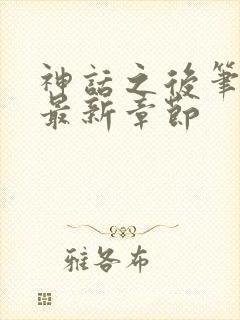 神話之後筆
最新章節
雅各布